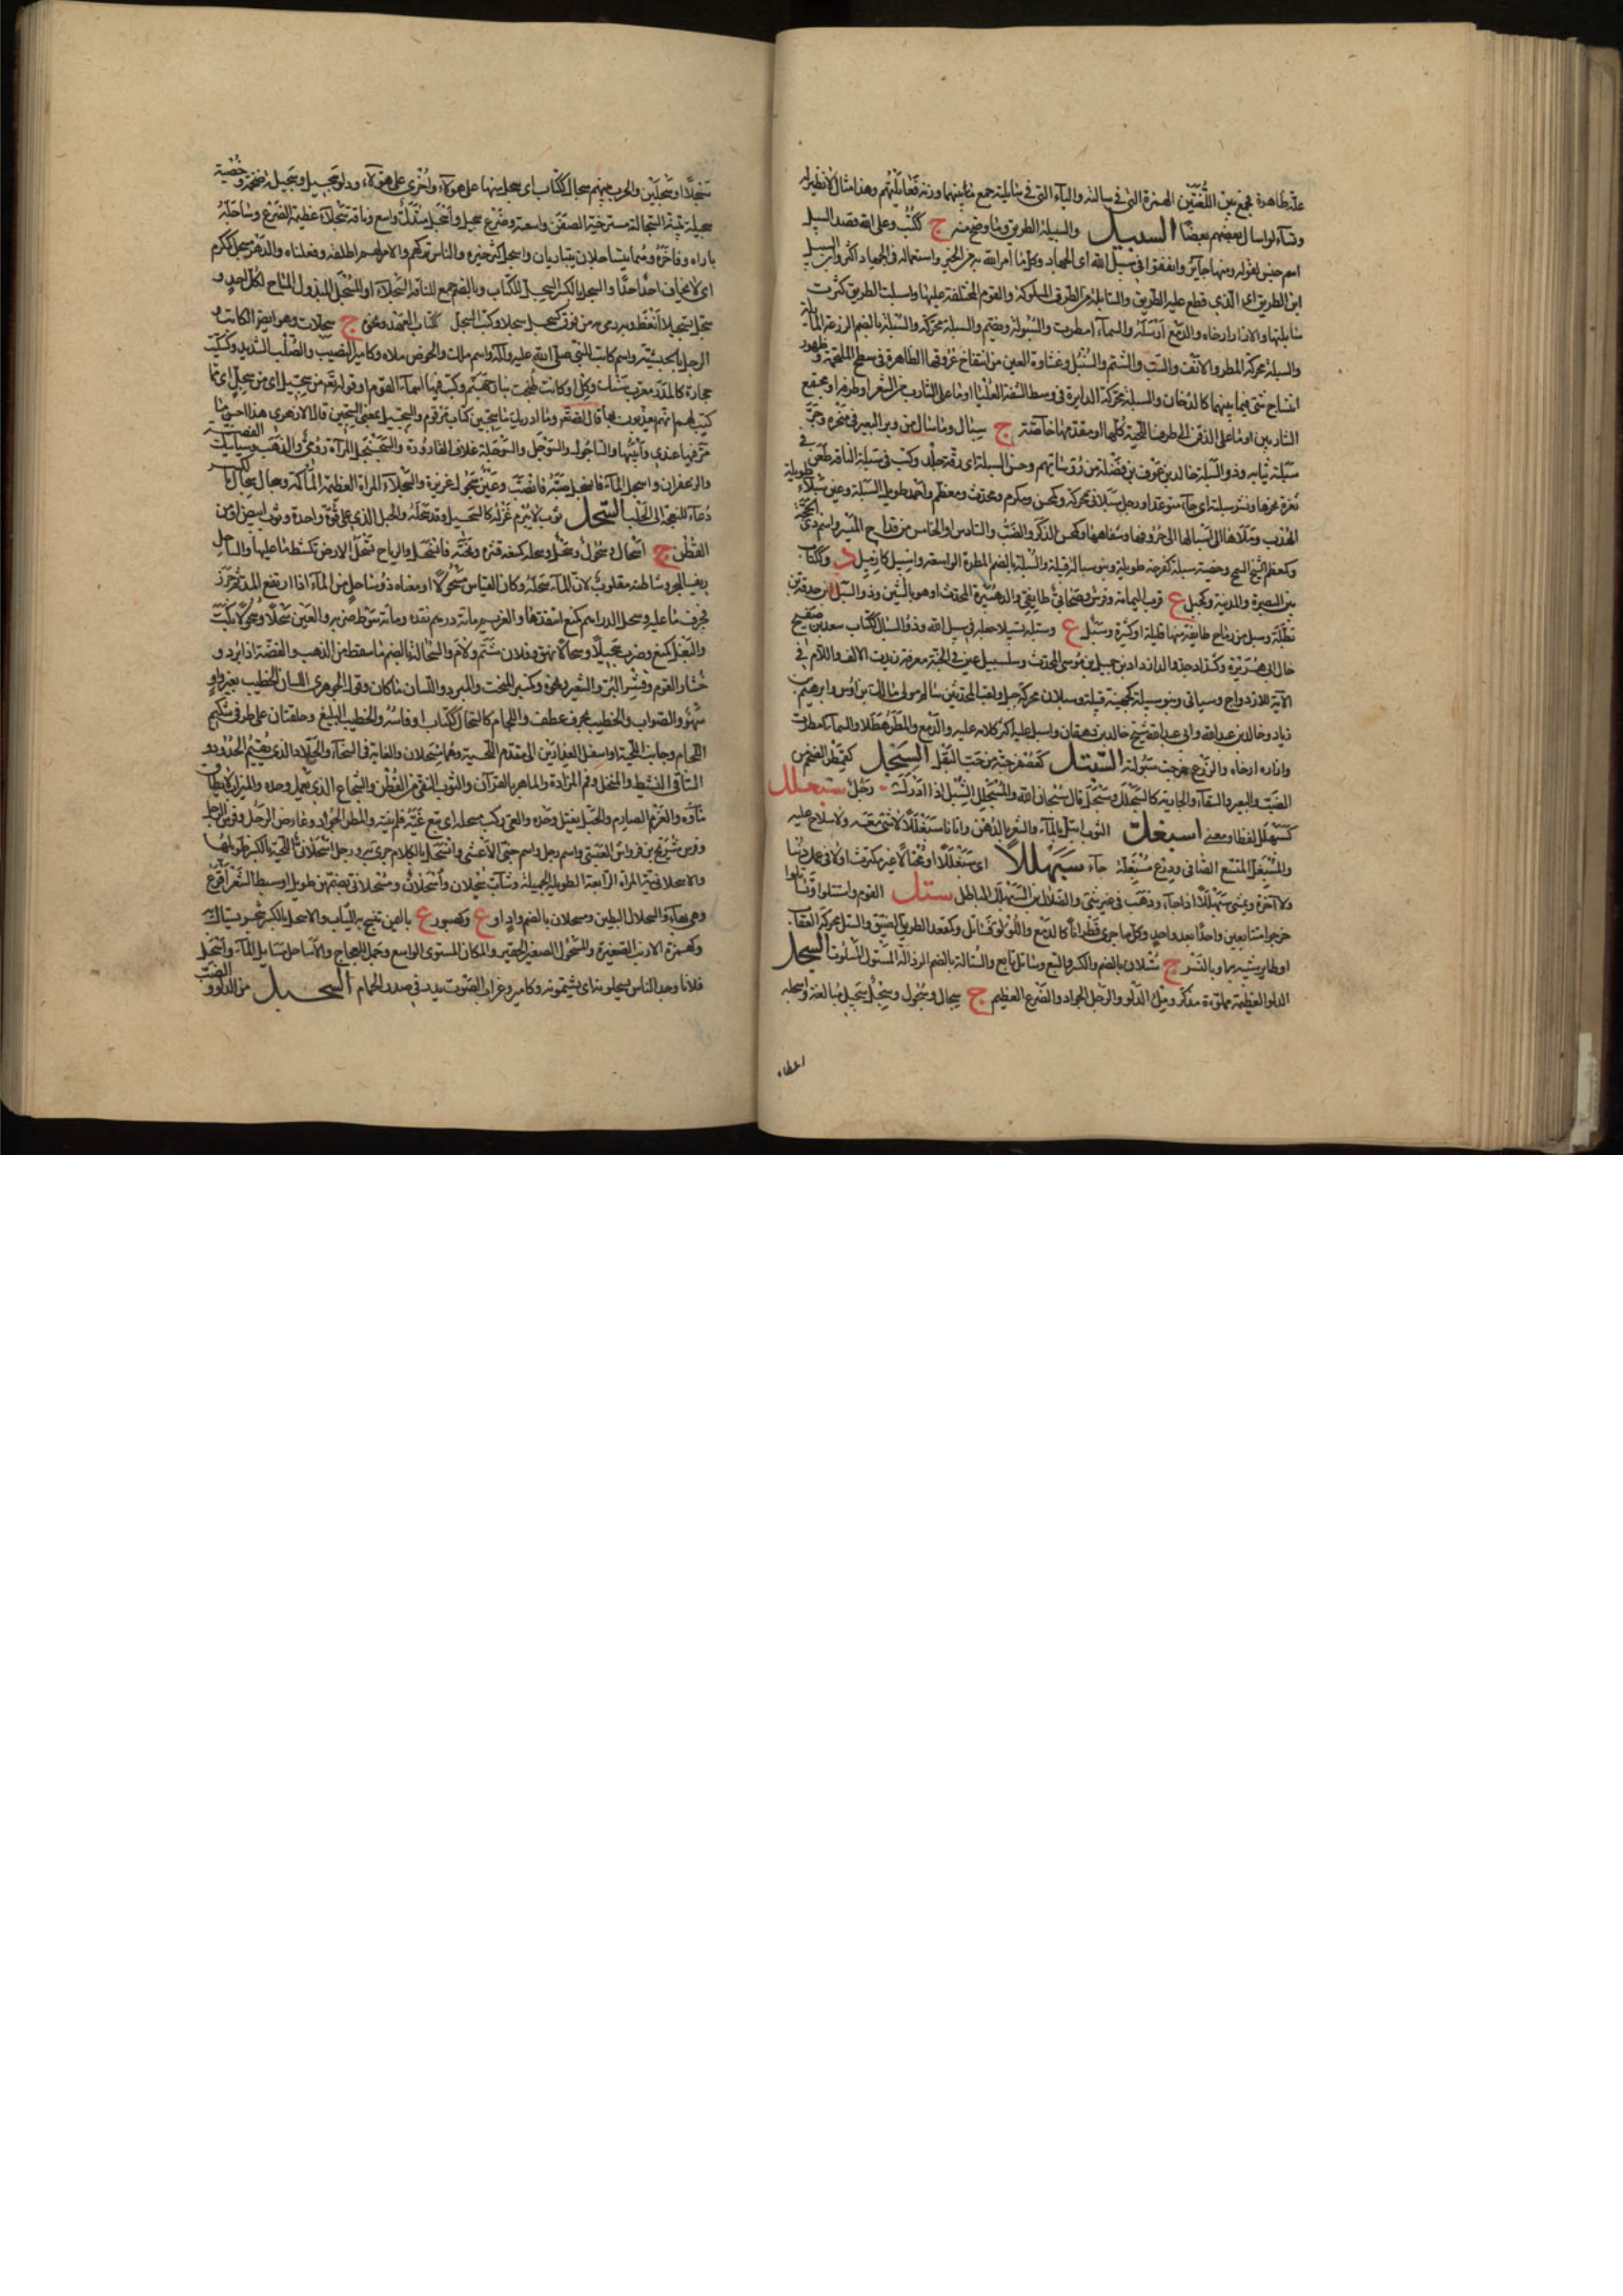 علة ظاهرة فجمع بين اللغتين الهمزة التي في سالته والياء التي في سايلته جمع بينهما ووزنه فعايلتهم وهذا مثال لا نظير له
وتساءلوا سال بعضهم بعضا السبيل والسبيلة الطريق وما وضح منه ج ككتب وعلى الله قصد السبيل
اسم جنس لقوله ومنها جاير وانفقوا في سبيل الله اى الجهاد وكل ما امر الله به من الخير واستعماله في الجهاد اكثر وابن السبيل
ابن الطريق اى الذي قطع عليه الطريق والسابلة من الطرق المسلوكة والقوم المختلفة عليها واسبلت الطريق كثرت
سابلتها والازار ارخاه والدمع ارسله والسماء امطرت والسبولة ويضم والسبلة محركة والسبلة بالضم الزرعة المايلة
والسبل محركة المطر والانف والسب والشتم والسنبل وغشاوة العين من انتفاخ عروقها الظاهرة في سطح الملتحمة وظهور
انتساج شئ فيما بينهما كالدخان والسبلة محركة الدايرة في وسط الشفة العليا او ما على الشارب من الشعر او طرفه او مجتمع
الشاربين او ما على الذقن الى طرف اللحية كلها او مقدمها خاصة ج سبال وما سال من وبر البعير في منحره وجر
سبلته ثيابه وذو السبلة خالد بن عوف بن نضلة من رؤسائهم وحسن السبلة اى رقة جلده وكتب في سبلة الناقة طعن في
ثغرة نحرها ونشر سبلته اى جاء متوعدا ورجل سبلاني محركة وكمحسن ومكرم ومحدث ومعظم واحمد طويل السبلة وعين سبلاء طويلة
الهدب وملأها الى اسبالها الى حروفها وشفاهها وكمحسن الذكر والضب والسادس او الخامس من قداح الميسر واسم ذي الحجة
وكمعظم الشيخ السمج وخصية سبلة كفرحة طويلة وبنو سبالة قبيلة والسبلة بالضم المطرة الواسعة واسبيل كازميل د وككتاب ع
بين البصرة والمدينة وكجبل ع قرب اليمامة وفرس وصحابي طايفي والد هبيرة المحدث او هو بالشين وذو السبل بن حدقة بن
مظة وسبل من رماح طايفة منها قليلة او كثيرة وسبلل ع وسبله تسبيلا جعله في سبيل الله وذو السبال ككتاب سعد بن صفيح
خال ابى هريرة وكشداد جد والد ازداد بن جميل بن موسى المحدث وسلسبيل عين في الجنة معرفة زيدت الالف واللام في
الآية للازدواج وسياتي وبنو سبيلة كجهينة قبيلة وسبلان محركة جبل ولقب المحدثين سالم مولى مالك بن اوس وابرهيم بن
زياد وخالد بن عبد الله وابى عبد الله شيخ خالد بن دهقان واسبل عليه اكثر كلامه عليه والدمع والمطر هطلا والسماء امطرت
وازاره ارخاه والزرع خرجت سبولته السبتل كعصفر حبة من حب البقل السبحل كقمطر الضخم من
الضب والبعير والسقاء والجارية كالسبحلل وسبحل قال سبحان الله والمسبحل الشبل اذا ادرك رجل سبحلل
كسبهلل لفظا ومعنى اسبغل الثوب ابتل بالماء والشعر بالدهن واتانا سبغللا لا شئ معه ولا سلاح عليه
والمسبغل المتسع الضافي ودرع مسبغلة جاء سبهللا اى سبغللا او مختالا غير مكترث او لا في عمل دنيا
ولا آخرة ويمشي سبهللا اذا جاء وذهب في غير شئ والضلال بن السبهلل الباطل ستل القوم واستتلوا وتساتلوا
خرجوا متتابعين واحدا بعد واحد وكل ما جرى قطرانا كالدمع واللؤلؤ فقد تساتل وكمقعد الطريق الضيق والستل محركة العقاب
او طاير شبيه بها وبالنسر ج ستلان بالضم والكسر والتبع وساتل تابع والستالة بالضم الرذالة المستول المسلوت السجل
الدلو العظيمة مملوءة مذكر وملء الدلو والرجل الجواد والضرع العظيم ج سجال وسجول وسجل سجيل مبالغة واسجله
اعطاه
سجلا او سجلين والحرب بينهم سجال ككتاب اى سجل منها على هولاء واخرى على هولاء ودلو سجيل وسجيلة ضخمة وخصية
سجيلة بينة السجالة مسترخية الصفن واسعته وضرع سجيل واسجل متدل واسع وناقة سجلاء عظيمة الضرع وساجله
باراه وفاخره وهما يتساجلان يتباريان واسجل كثر خيره والناس تركهم والامر لهم اطلقه وفعلناه والدهر مسجل كمكرم
اى لا يخاف احد احدا والسجل بالكسر السجيل للكتاب وبالضم جمع للناقة السجلاء او المسجل المبذول المباح لكل احد و
سجل تسجيلا انعظ وبه رمى به من فوق كسجل سجلا وكتب السجل لكتاب العهد ونحوه ج سجلات وهو ايضا الكاتب و
الرجل بالحبشية واسم كاتب للنبي صلى الله عليه وآله واسم ملك والحوض ملاه وكامير النصيب والصلب الشديد وكسكيت
حجارة كالمدر معرب سنك وكل او كانت طبخت بنار جهنم وكتب فيها اسماء القوم او قوله تعم من سجيل اى من سجل اى مما
كتب لهم انهم يعذبون بها قال الله تعم وما ادريك ما سجين كتاب مرقوم والسجيل بمعنى السجين قال الازهرى هذا احسن ما
مر فيها عندى واثبتها والساجول والسوجل والسوجلة غلاف القارورة والسجنجل المرآة رومي والذهب وسبايك الفضة
والزعفران واسجل الماء فانسجل صبه فانصب وعين سجول غزيرة والسجلاء المراة العظيمة المأكمة وسجال سجال بالكسر
دعاء للنعجة الى الحلب السحل ثوب لا يبرم غزله كالسحيل وقد سحله والحبل الذي على قوة واحدة وثوب ابيض او من
القطن ج اسحال وسحول وسحل وسحله كمنعه قشره ونحته فانسحل والرياح تسحل الارض تكشط ما عليها والساحل
ريف البحر وشاطئه مقلوب لان الماء سحله وكان القياس مسحولا او معناه ذو ساحل من الماء اذا ارتفع المد ثم جزر
فجرف ما عليه وسحل الدراهم كمنع انتقدها والغريم مائة درهم نقده ومائة سوط ضربه والعين سحلا وسحولا بكت
والبغل كمنع وضرب سحيلا وسحالا نهق وفلان شتم ولام والسحالة بالضم ما سقط من الذهب والفضة اذا برد و
خشار القوم وقشر البر والشعير ونحوه وكمنبر المنحت والمبرد واللسان ما كان وقول الجوهرى اللسان الخطيب بغير واو
سهو والصواب والخطيب بحرف عطف واللجام كالسحال ككتاب او فاسه والخطيب البليغ وحلقتان على طرفي شكيم
اللجام وجانب اللحية او اسفل العذارين الى مقدم اللحية وهما مسحلان والغاية في السخاء والجلاد الذي يقيم الحدود و
الساقي النشيط والمنخل وفم المزادة والماهر بالقرآن والثوب النقي من القطن والشجاع الذي يعمل وحده والميزاب لا يطاق
ماؤه والعزم الصارم والحبل يفتل وحده والغي ركب مسحله اى تبع غيه فلم ينته والمطر الجواد وعارض الرجل وفرس الرجل
وفرس شريح بن قرواش العبسي واسم رجل واسم جني الاعشى وانسحل بالكلام جرى به ورجل اسحلاني اللحية بالكسر طويلها
والاسحلانية المراة الرايعة الطويلة الجميلة وشاب مسحلان واسحلان ومسحلاني بضمهن طويل او سبط الشعر افرع
وهى بهاء والسحلال البطين ومسحلان بالضم واد او ع وكصبور ع باليمن تنسج به الثياب والاسحل بالكسر شجر يستاك به
وكهمزة الارنب الصغيرة والمسحول الصغير الحقير والمكان المستوى الواسع وجمل للعجاج والاساحل مسايل الماء واسحل
فلانا وجد الناس يسحلونه اى يشتمونه وكامير وغراب الصوت يدور في صدر الحمار السحبل من الدلو والضب